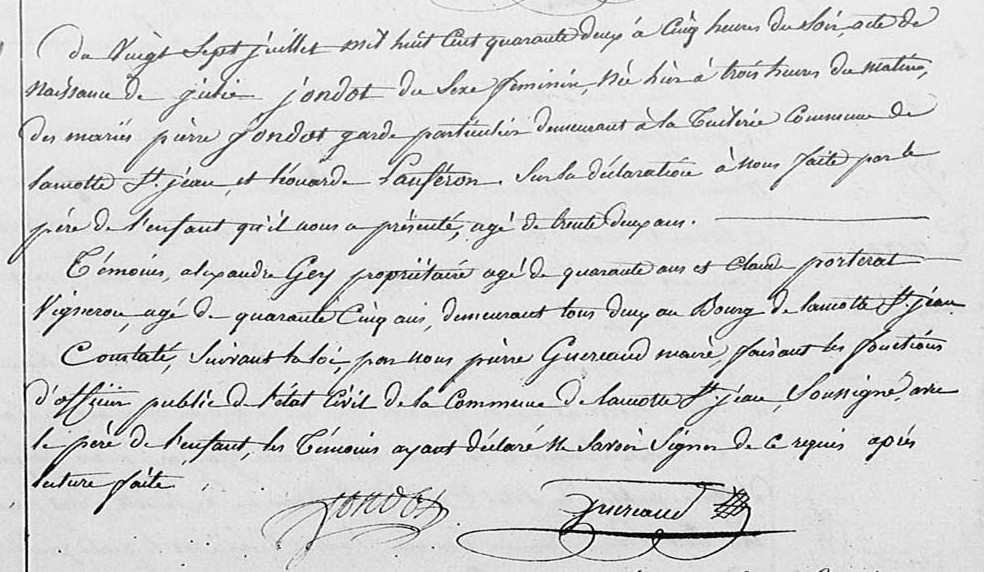 Du Vingt Sept juillet mil huit Cent quarante deux à Cinq heures du Soir, acte de
Naissance de julie jondot du Sexe féminin, Née hier à trois heures du matin,
des mariés pierre Jondot garde particulier demeurant à la Tuilerie Commune de
lamotte St. jean, et léonarde Lauféron. Sur la déclaration à nous faite par le
père de l'enfant qu'il nous a présenté, agé de trente deux ans.
Témoins, alexandre Gey propriétaire agé de quarante ans et Claude porterat
Vigneron, agé de quarante Cinq ans, demeurant tous deux au Bourg de lamotte St. jean
Constaté, Suivant la loi, par nous pierre Guereaud maire, faisant les fonctions
d'officier public de l'état Civil de la Commune de lamotte St. jean, Soussigné, avec
le père de l'enfant, les Témoins ayant déclaré ne Savoir Signer de ce requis après
lecture faite
JONDOT Guereaud